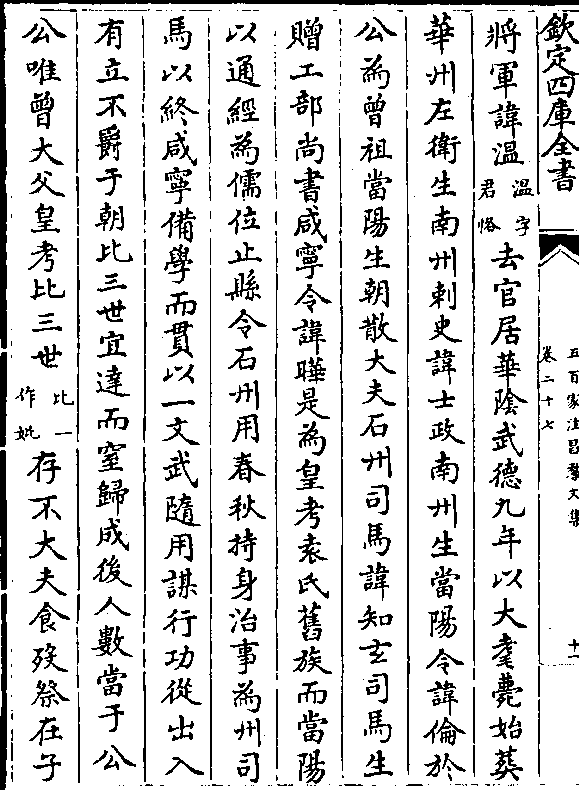 欽定四庫全書
五百家注昌黎文集
卷二十七
十一
將軍諱温温字君恪去官居華陰武德九年以大耄薨始葬
華州左衛生南州刺史諱士政南州生當陽令諱倫於
公為曾祖當陽生朝散大夫石州司馬諱知𤣥司馬生
贈工部尚書咸寧令諱曄是為皇考袁氏舊族而當陽
以通經為儒位止縣令石州用春秋持身治事為州司
馬以終咸寧備學而貫以一文武隨用謀行功從出入
有立不爵于朝比三世宜達而窒歸成後人數當于公
公唯曾大父皇考比三世比一作妣存不大夫食歿祭在子